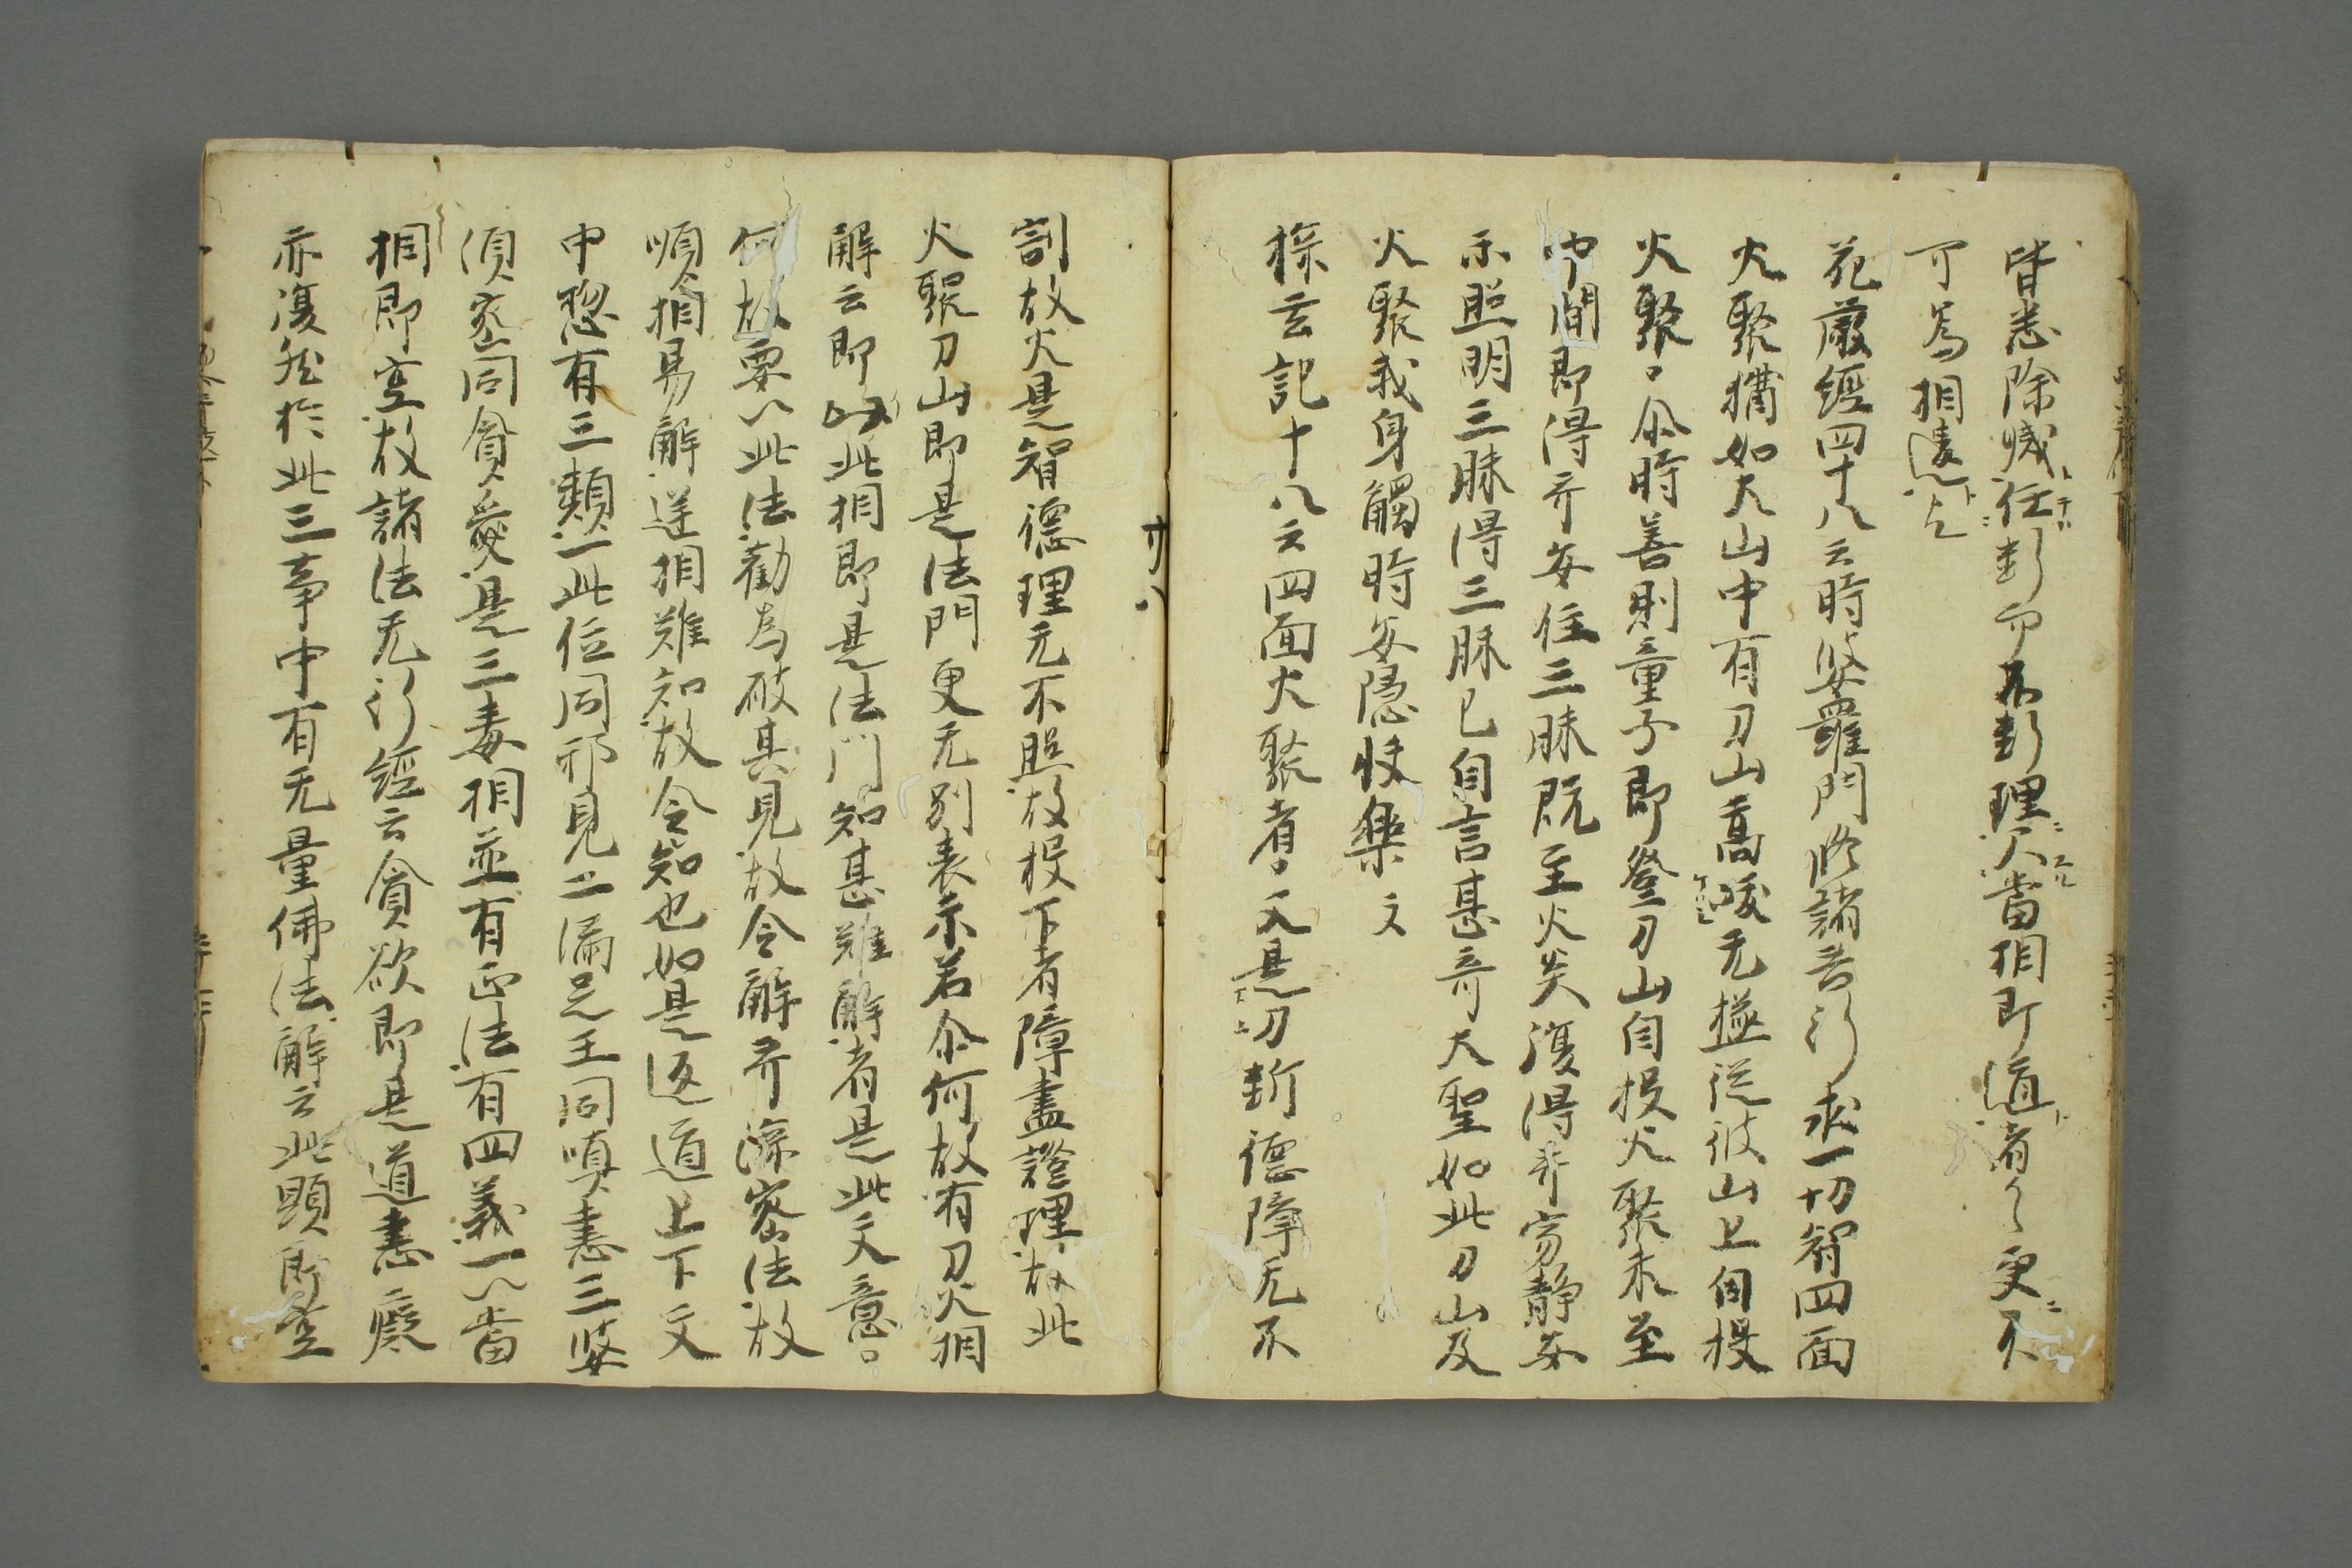 皆悉除滅任斷而不斷理不當相即道者〻更不
可為相違云云
花嚴經四十八云時婆羅門修諸苦行求一切智四面
火聚猶如大山中有刀山高峻无極從彼山上自投
火聚。尒時善財童子即登刀山自投火聚未至
中間即得菩安住三昧既至火炎復得菩寂静安
示照明三昧得三昧已自言甚奇大聖如此刀山及
火聚我身觸時安隱快樂文
探玄記十八云四面火聚者。文是刀斷德障无不
割故火是智德理无不照故投下者障盡證理故此
火聚刀山即是法門更无別表示若尒何故有刀火相
解云即此相即是法门知甚難解者是此文意。
何故要以此法勸為破其見故令解菩深密法故
順相易解逆相難知故令知也如是返道上下文
中惣有三類一此位同邪見二滿足王同嗔恚三婆
須蜜同貪愛是三毒相並有正法有四義一以當
相即空故諸法无行經云貪欲即是道恚癡
亦復然於此三事中有无量佛法解云此顯即空
廿八